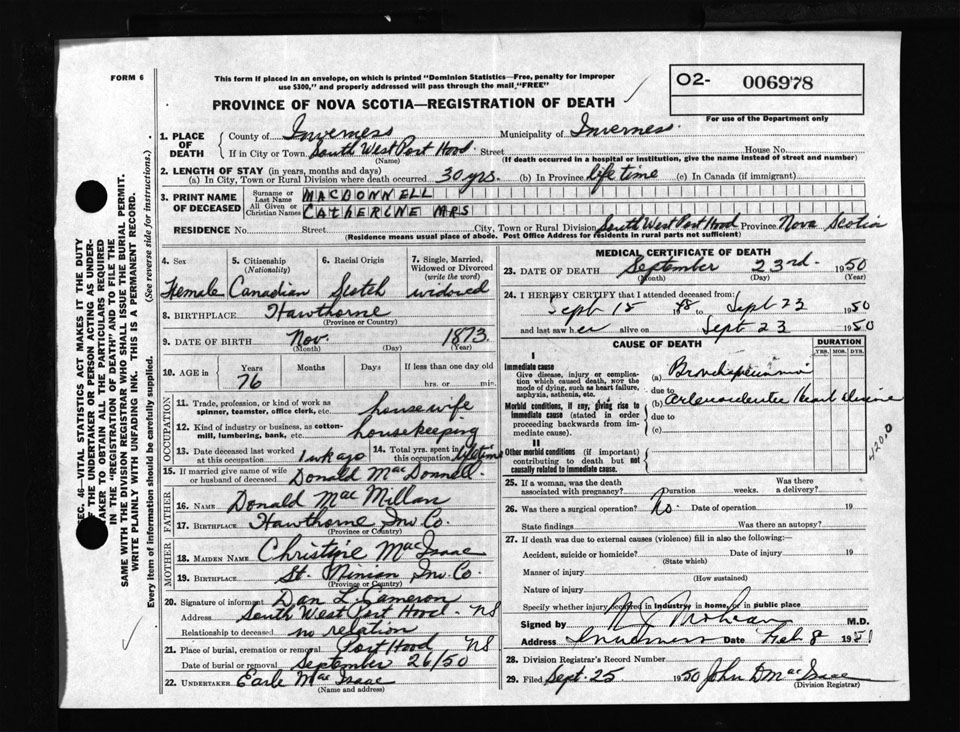 FORM 6
This form if placed in an envelope, on which is printed "Dominion Statistics—Free, penalty for improper
use $300," and properly addressed will pass through the mail "FREE"
O2- 006978
For use of the Department only
PROVINCE OF NOVA SCOTIA—REGISTRATION OF DEATH
1. PLACE OF DEATH
County of Inverness Municipality of Inverness
If in City or Town South West Port Hood Street House No.
(Name) (If death occurred in a hospital or institution, give the name instead of street and number)
2. LENGTH OF STAY (in years, months and days)
(a) In City, Town or Rural Division where death occurred 30 yrs. (b) In Province life time (c) In Canada (if immigrant)
3. PRINT NAME OF DECEASED
Surname or Last Name MACDONNELL
All Given or Christian Names CATHERINE MRS
RESIDENCE No. Street City, Town or Rural Division South West Port Hood Province Nova Scotia
(Residence means usual place of abode. Post Office Address for residents in rural parts not sufficient)
4. Sex Female
5. Citizenship (Nationality) Canadian
6. Racial Origin Scotch
7. Single, Married, Widowed or Divorced (write the word) widowed
8. BIRTHPLACE Hawthorne
(Province or Country)
9. DATE OF BIRTH Nov. 1873
(Month) (Day) (Year)
10. AGE in Years 76 Months Days If less than one day old
hrs. or min.
OCCUPATION
11. Trade, profession, or kind of work as spinner, teamster, office clerk, etc. housewife
12. Kind of industry or business, as cotton-mill, lumbering, bank, etc. housekeeping
13. Date deceased last worked at this occupation 1 wk ago
14. Total yrs. spent in this occupation lifetime
15. If married give name of wife or husband of deceased Donald MacDonnell.
FATHER
16. Name Donald MacMillan
17. Birthplace Hawthorne Inv. Co.
(Province or Country)
MOTHER
18. Maiden Name Christine MacIsaac
19. Birthplace St. Ninian Inv. Co.
(Province or Country)
20. Signature of informant Dan L Cameron
Address South West Port Hood - NS
Relationship to deceased no relation
21. Place of burial, cremation or removal Port Hood NS
Date of burial or removal September 26/50
22. Undertaker Earle MacIsaac
(Name and address)
MEDICAL CERTIFICATE OF DEATH
23. DATE OF DEATH September 23rd 1950
(Month) (Day) (Year)
24. I HEREBY CERTIFY that I attended deceased from:
Sept 15 to Sept 23 1950
and last saw her alive on Sept 23 1950
CAUSE OF DEATH
DURATION
YRS. MOS. DYS.
I
Immediate cause
Give disease, injury or complication which caused death, NOT the mode of dying, such as heart failure, asphyxia, asthenia, etc.
(a) Bronchopneumonia
due to
Morbid conditions, if any, giving rise to immediate cause (stated in order proceeding backwards from immediate cause).
(b) arteriosclerotic Heart disease
due to
(c)
420.0
II
Other morbid conditions (if important) contributing to death but not causally related to immediate cause.
25. If a woman, was the death associated with pregnancy? Duration weeks. Was there a delivery?
26. Was there a surgical operation? No. Date of operation 19
State findings Was there an autopsy?
27. If death was due to external causes (violence) fill in also the following:—
Accident, suicide or homicide? Date of injury 19
(State which)
Manner of injury
(How sustained)
Nature of injury
Specify whether injury occurred in industry, in home, or in public place
Signed by M.D.
Address Inverness Date Feb 8 1951
28. Division Registrar's Record Number
29. Filed Sept. 25 1950 John D MacIsaac
(Division Registrar)
SEC. 46—VITAL STATISTICS ACT MAKES IT THE DUTY
OF THE UNDERTAKER OR PERSON ACTING AS UNDERTAKER TO OBTAIN ALL THE PARTICULARS REQUIRED
IN THE "REGISTRATION OF DEATH" AND TO FILE THE
SAME WITH THE DIVISION REGISTRAR WHO SHALL ISSUE THE BURIAL PERMIT.
WRITE PLAINLY WITH UNFADING INK. THIS IS A PERMANENT RECORD.
Every item of information should be carefully supplied. (See reverse side for instructions.)